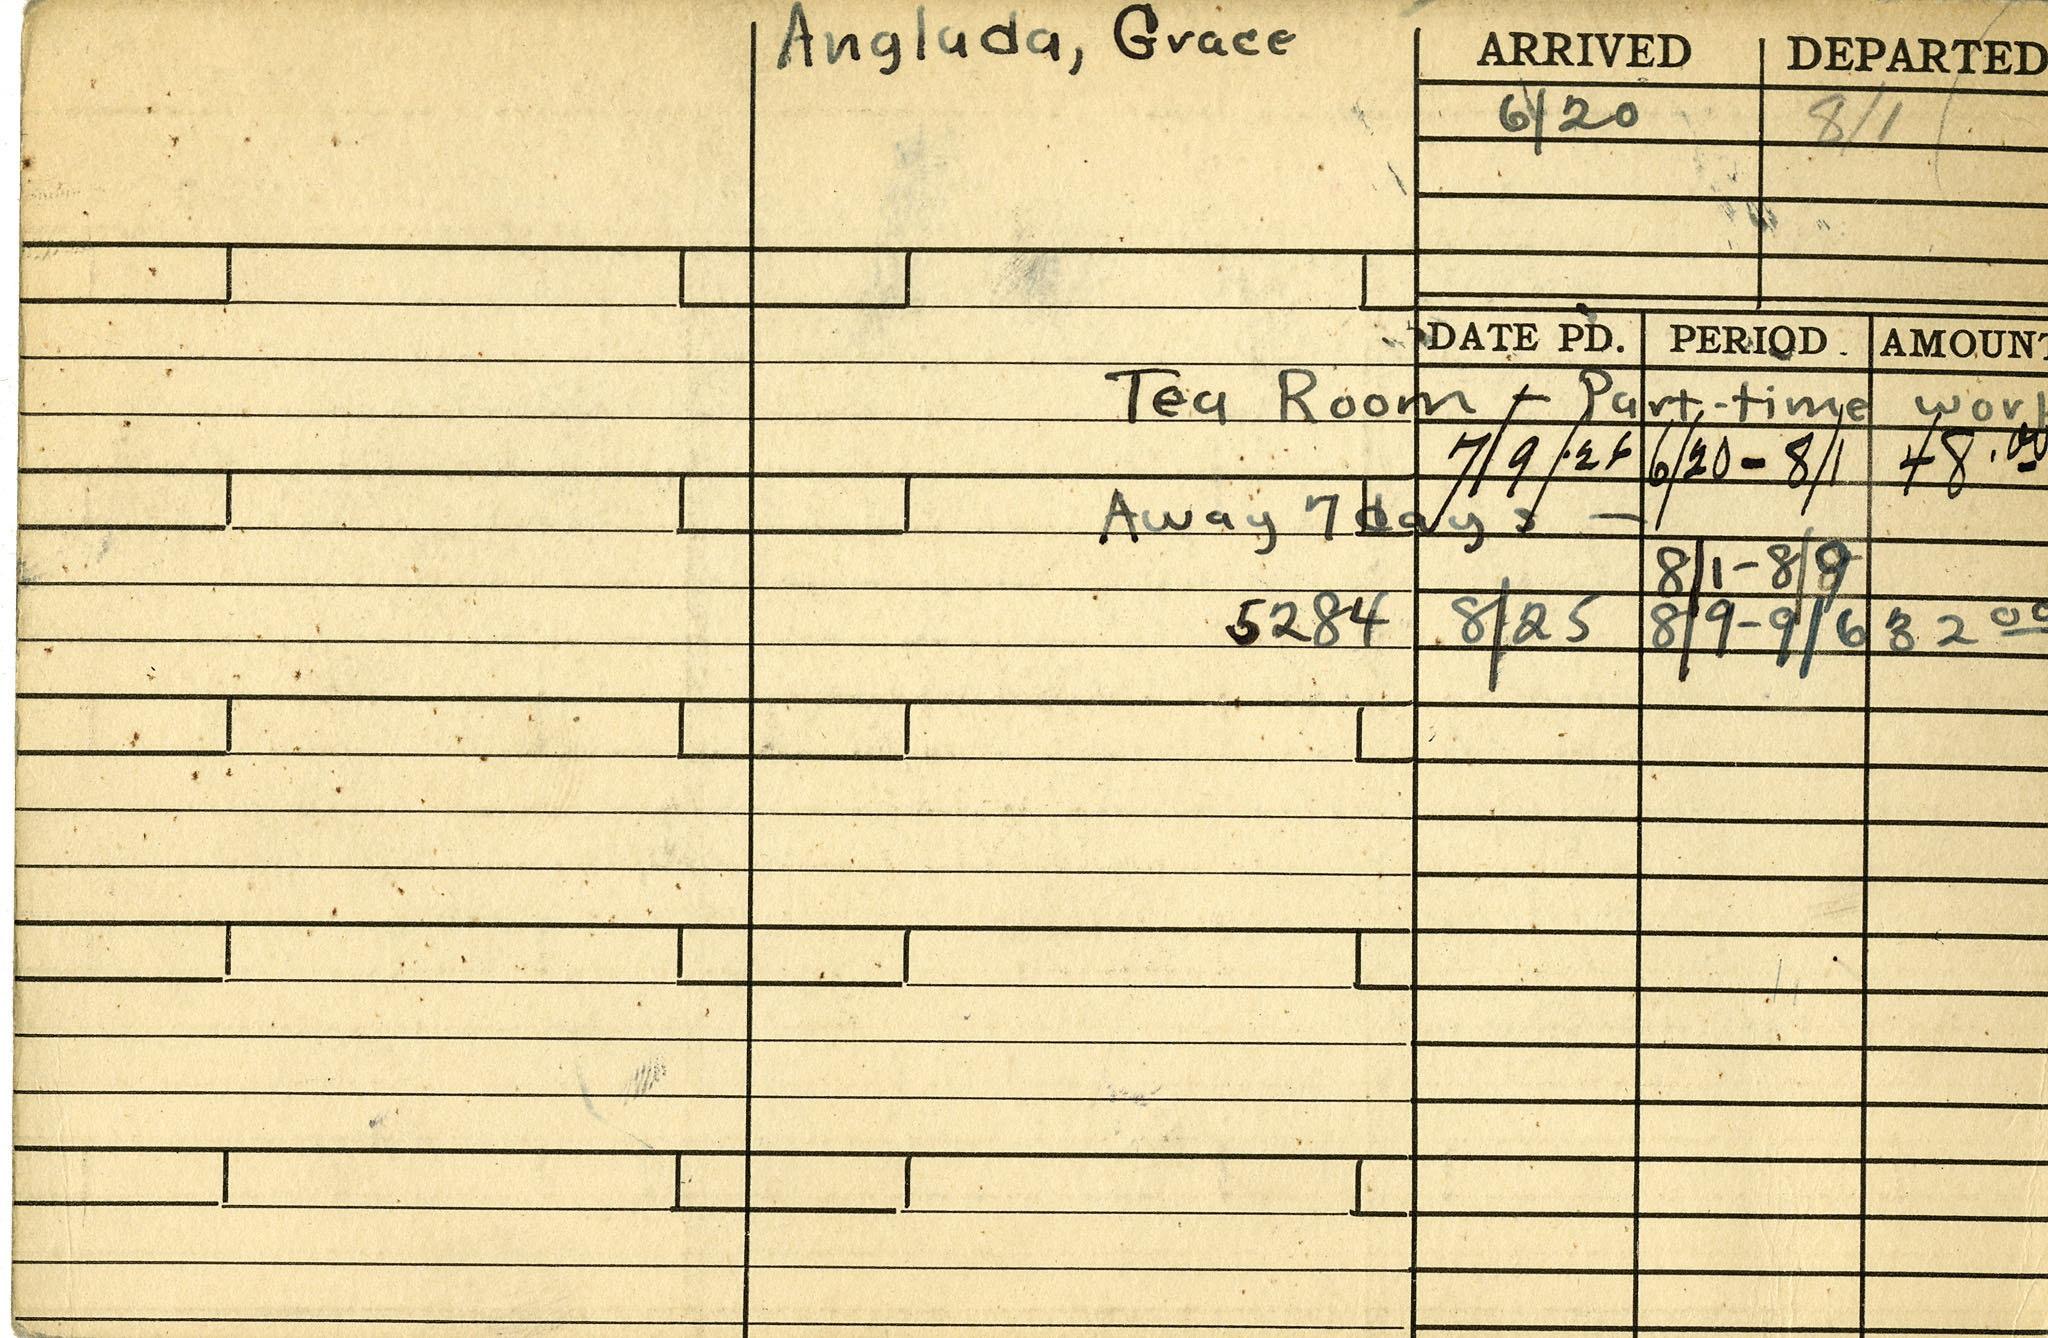 Anglada, Grace
ARRIVED DEPARTED
6/20 8/1
DATE PD. PERIOD AMOUNT
Tea Room - Part-time work
7/9/26 6/20-8/1 48.00
Away 7 days -
8/1-8/9
5284 8/25 8/9-9/6 32 00